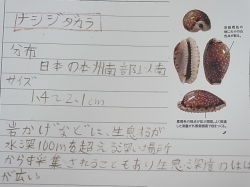 ナシジダカラ
分布
日本の本州南部以南
サイズ
1.4~2.1cm
岩かげなどに、生息するが
水深100mを超える深い場所
から採集されることもあり生息深度のはば
が広い